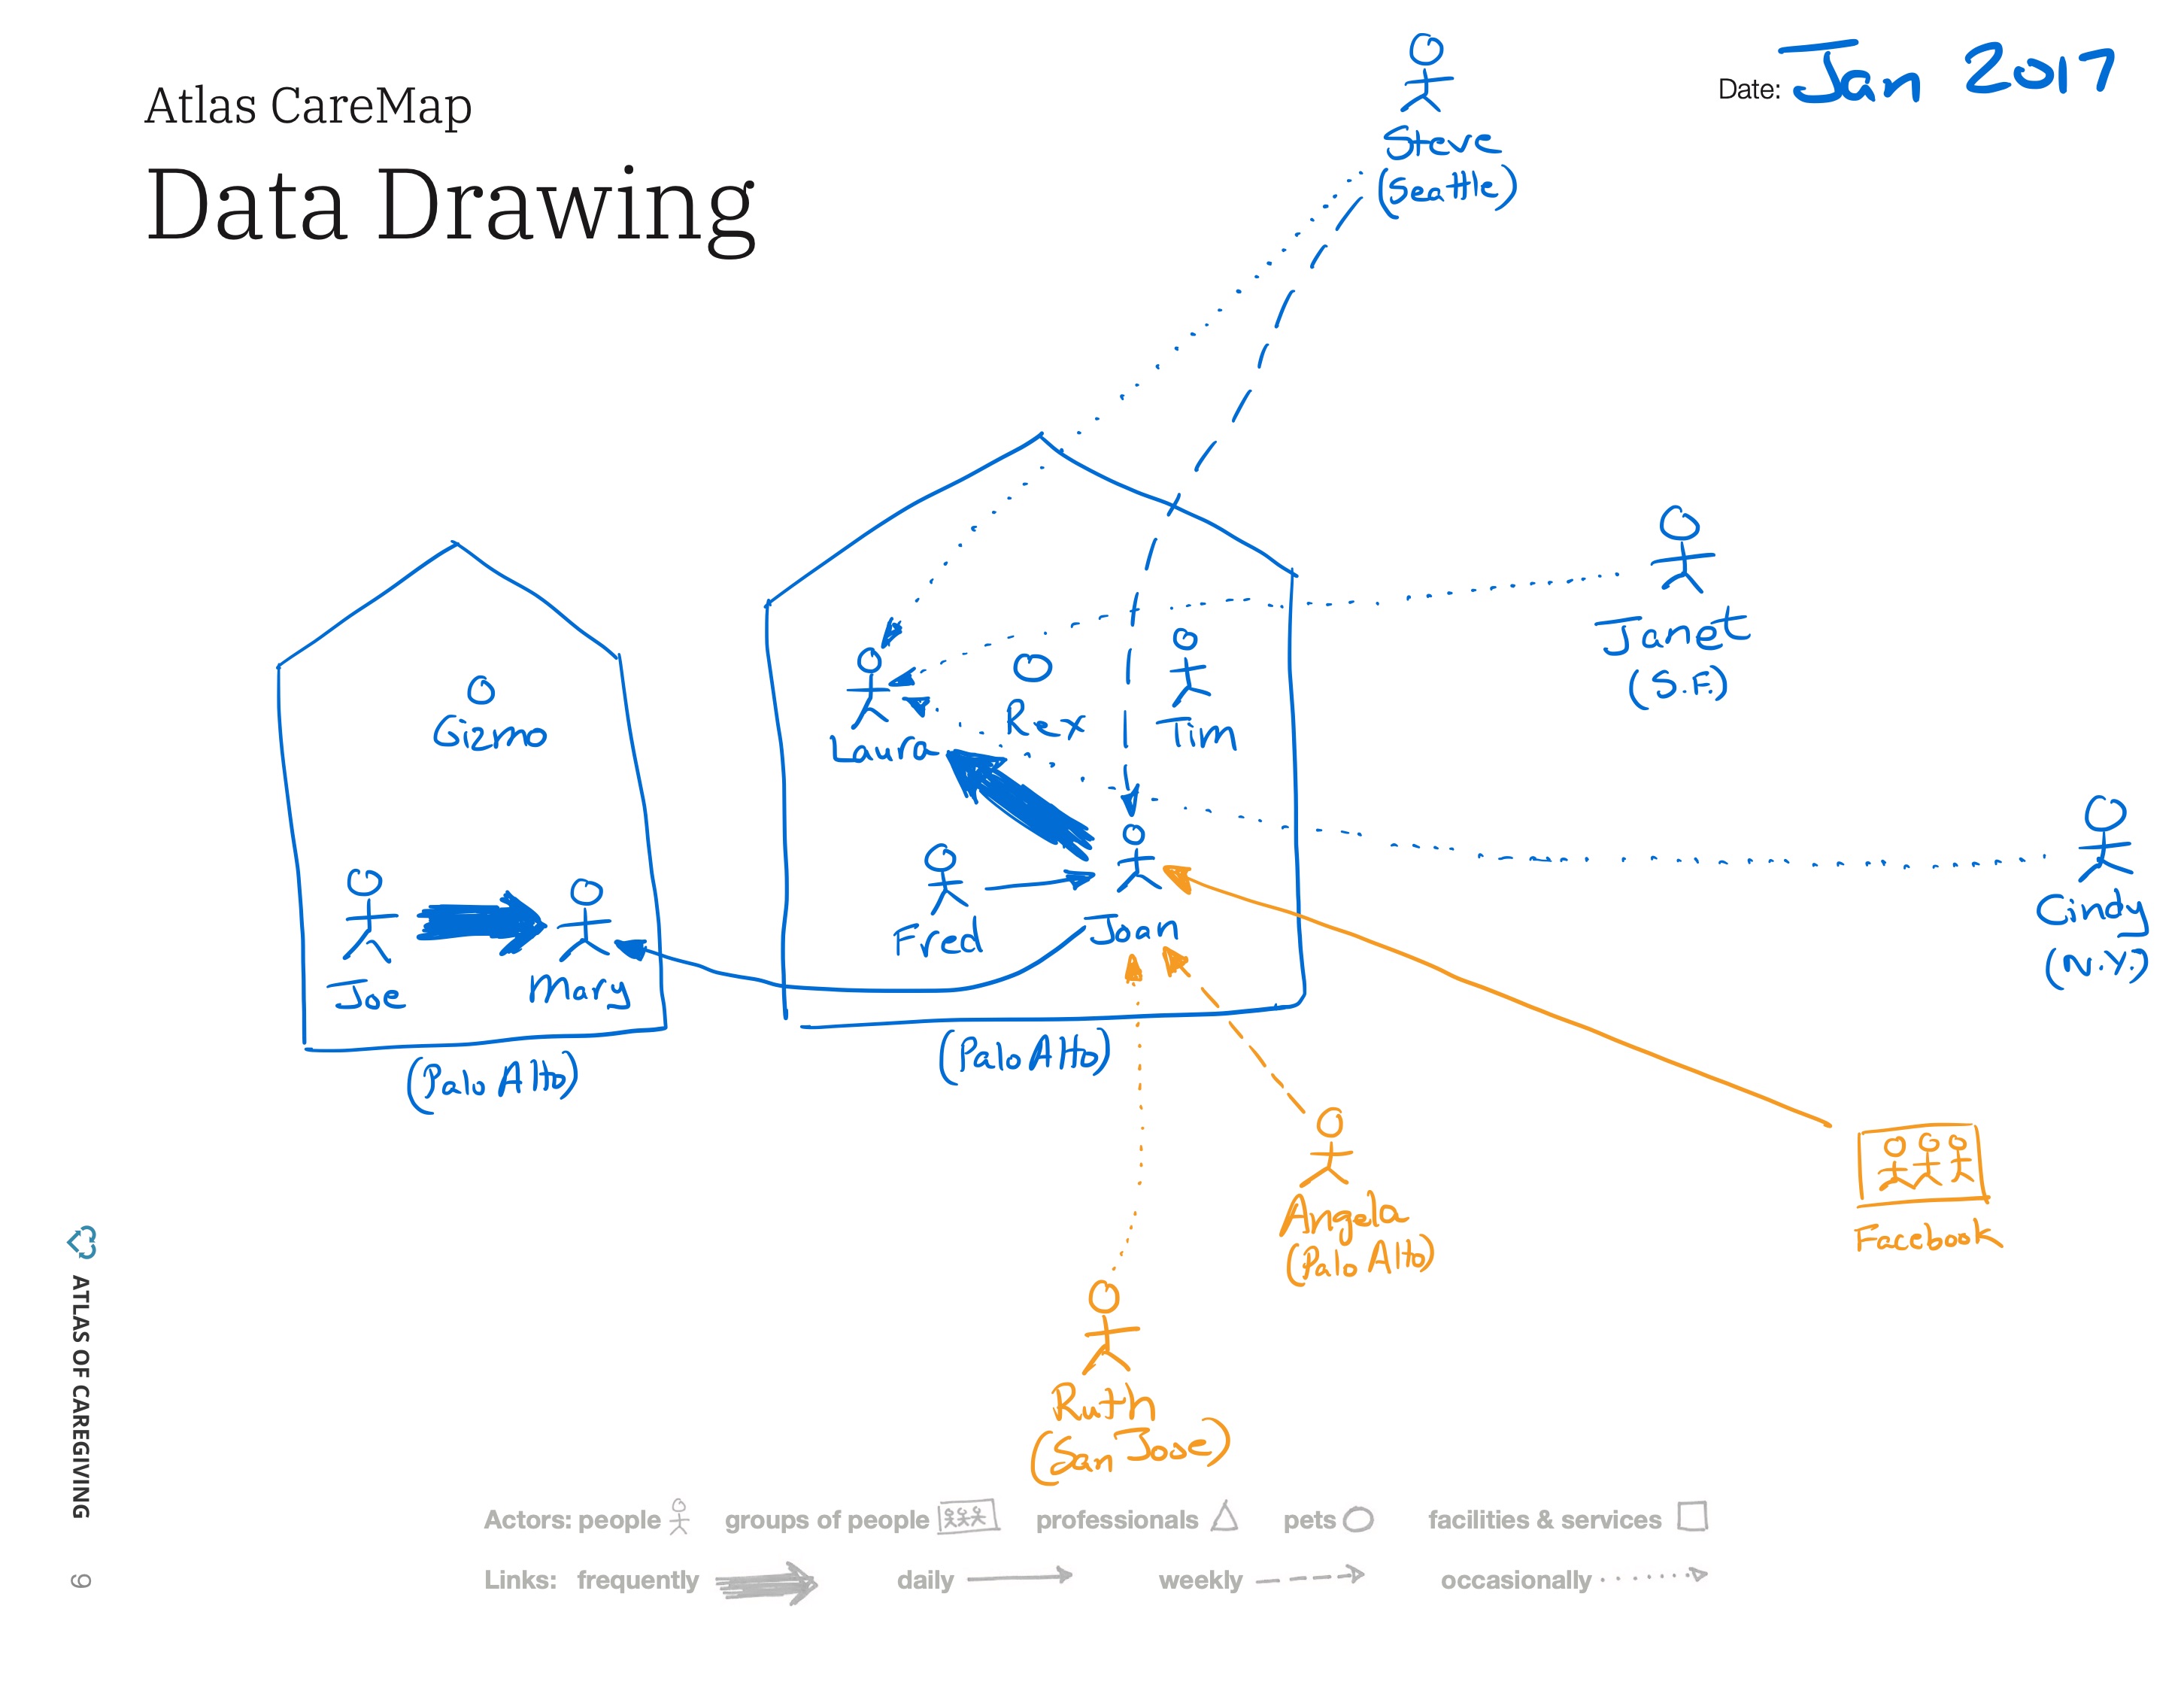 Atlas CareMap
Data Drawing
Date: Jan 2017
Steve
(Seattle)
Janet
(S.F.)
Gizmo
Rex
Tim
Laura
Cindy
(N.Y.)
Fred
Joan
Joe
Mary
(Palo Alto)
(Palo Alto)
Angela
(Palo Alto)
Facebook
Ruth
(San Jose)
Actors: people groups of people professionals pets facilities & services
Links: frequently daily weekly occasionally
ATLAS OF CAREGIVING
9